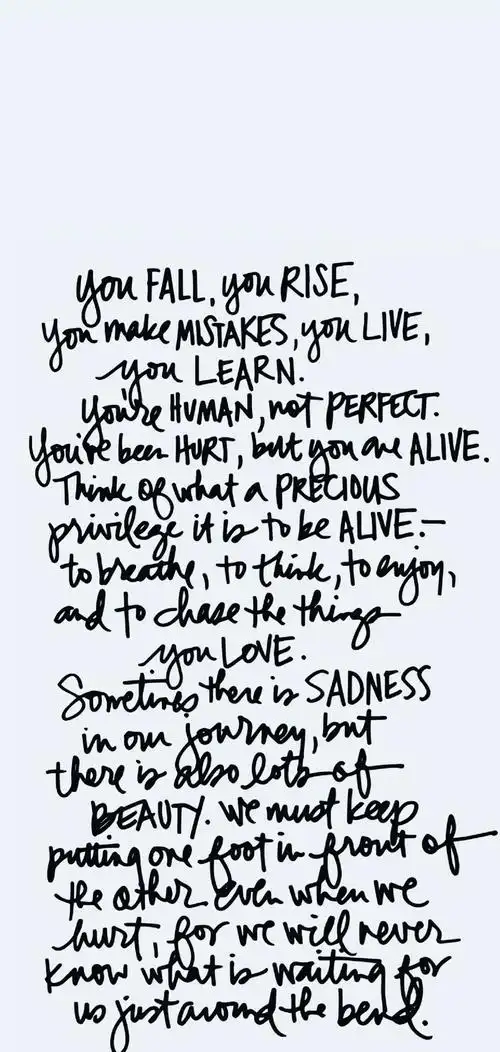 you FALL, you RISE,
you make MISTAKES, you LIVE,
you LEARN.
You're HUMAN, not PERFECT.
You've been HURT, but you are ALIVE.
Think of what a PRECIOUS
privilege it is to be ALIVE.—
to breathe, to think, to enjoy,
and to chase the things
you LOVE.
Sometimes there is SADNESS
in our journey, but
there is also lots of
BEAUTY. We must keep
putting one foot in front of
the other even when we
hurt, for we will never
know what is waiting for
us just around the bend.